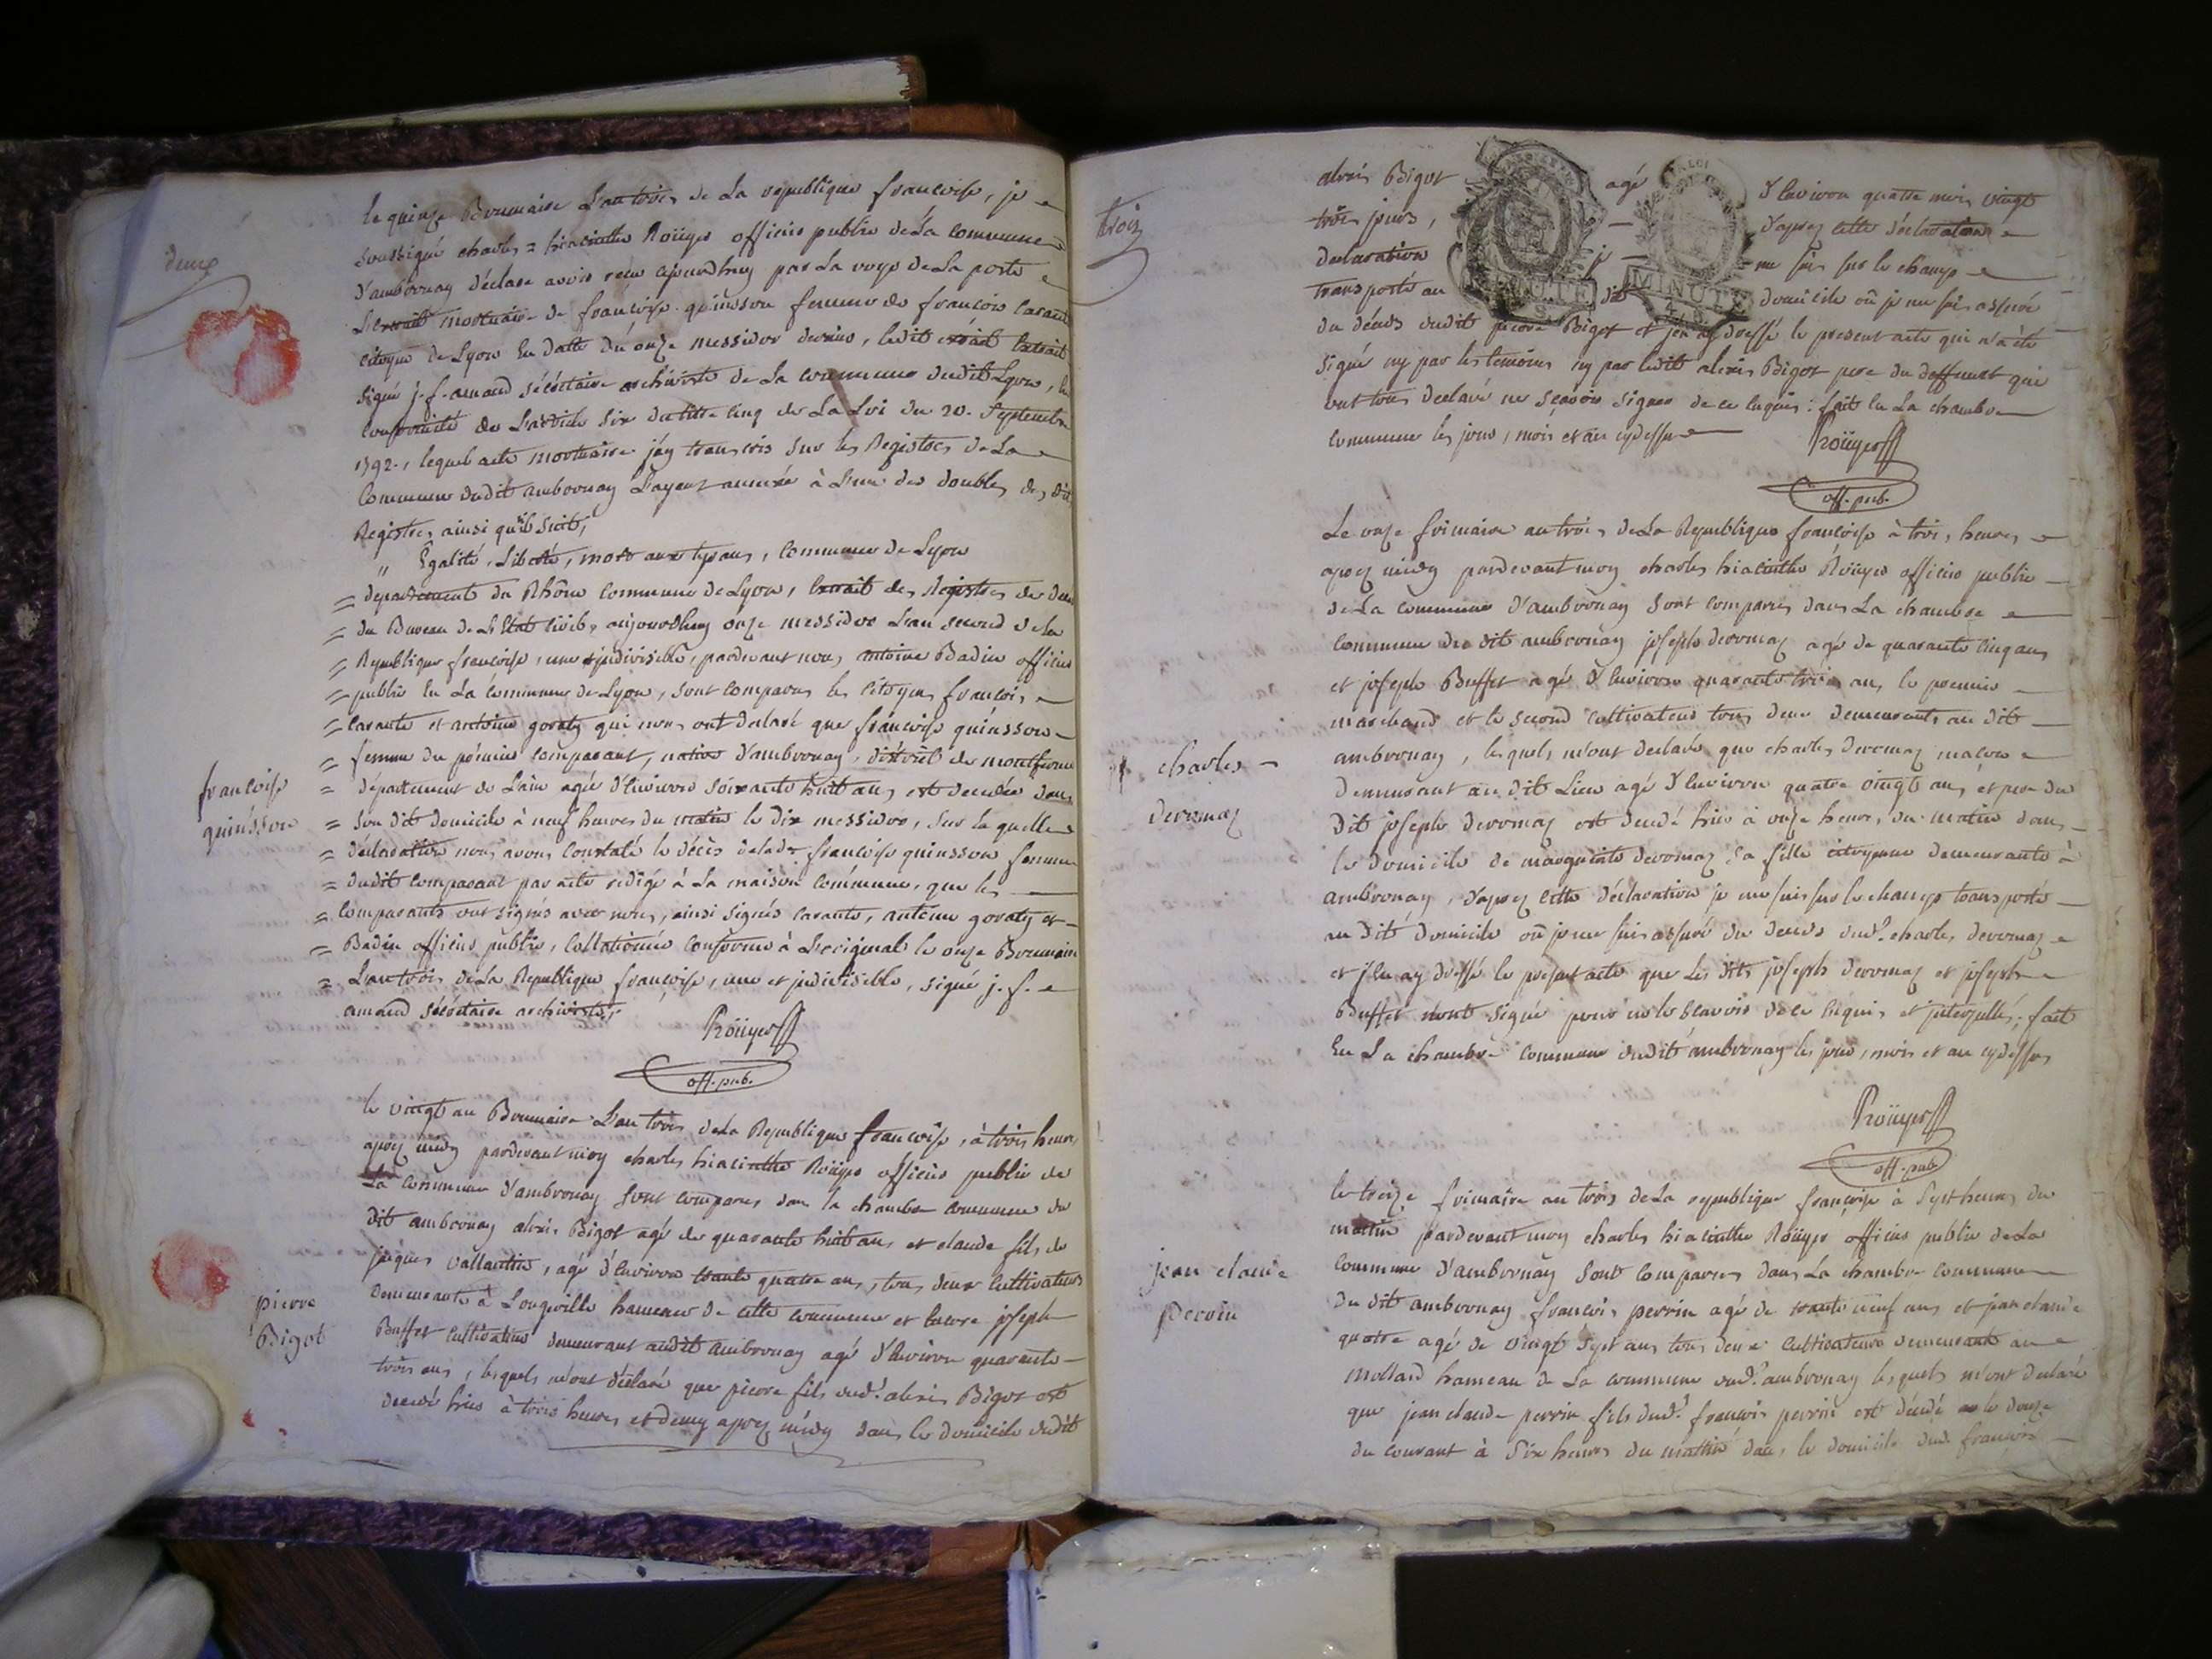 deux
le quinze Brumaire L'an trois de La republique françoise, je
soussigné charles = hiacinthe Roüyer officier public de La commune
d'ambronay déclare avoir reçu ajourdhuy par La voye de La poste
L'extrait mortuaire de françoise quinsson femme de françois Carante
citoyen de Lyon En datte du onze messidor dernier, ledit extrait
signé j. f. amand sécrétaire archiviste de La commune dudit Lyon, En
conformité de L'article six du titre cinq de La Loi du 20. Septembre
1792., lequel acte mortuaire j'ay transcris sur les Registres de La
Commune dudit ambronay L'ayant annexé à L'un des doubles des dits
Registres ainsi qu'il suit;
" Égalité, Liberté, mort aux tyrans, commune de Lyon
= departement du Rhône commune de Lyon, Extrait des Registres de deux
= du Bureau de L'Etat civil, aujourdhuy onze messidor L'an second de la
= Republique françoise, une et indivisible, pardevant nous antoine Badin officier
= public En La commune de Lyon, sont comparus les citoyens françois
= carante et antoine goraty qui nous ont declaré que françoise quinsson
= femme du premier comparant, native d'ambronay, district de montferme
= département de L'ain agée d'Environ soixante huit ans est decedée dans
françoise
quinsson
= son dit domicile à neuf heures du matin le dix messidor, sur laquelle
= déclaration nous avons constaté le décès de lade françoise quinsson femme
= dudit comparant par acte redigé à La maison commune, que les
= comparants ont signés avec nous, ainsi signés carante, antoine goraty et
= Badin officier public, collationée conforme à L'original le onze Brumaire
= L'an trois de La Republique françoise, une et indivisible, signé j. f.
amand sécrétaire archiviste;
Roüyer
off. pub.
le vingt un Brumaire L'an trois de La Republique françoise, à trois heures
aprez midy pardevant moy charles hiacinthe Roüyer officier public de
La commune d'ambronay sont comparus dans la chambre commune du
dit ambronay alexis Bigot agé de quarante huit ans et claude fils de
jaques vallantin, agé d'Environ trante quatre ans, tous deux cultivateurs
demeurants à Longeville hameau de cette commune et Encore joseph
pierre
Bigot
Buffet cultivateur demeurant audit ambronay agé d'Environ quarante
trois ans, lesquels m'ont déclaré que pierre fils dud.t alexis Bigot est
decedé hier à trois heures et demy aprez midy dans le domicile dudit
trois
alexis Bigot agé d'Environ quatre mois vingt
trois jours, d'aprez cette déclaration
declaration je me suis sur le champ
transporté au dit domicile où je me suis assuré
du décès dudit pierre Bigot et j'en ay dressé le present acte qui n'a été
signé ny par les temoins ny par ledit alexis Bigot pere du deffunt qui
ont tous declaré ne sçavoir signer de ce Enquis: fait En La chambre
commune les jour, mois et an cydessus
Roüyer
off. pub.
Le onze frimaire an trois de La Republique françoise à trois heures
aprez midy pardevant moy charles hiacinthe Roüyer officier public
de La commune d'ambronay sont comparus dans La chambre
commune du dit ambronay joseph deromaz agé de quarante cinq ans
et joseph Buffet agé d'Environ quarante trois ans, le premier
marchand et le second cultivateur tous deux demeurants au dit
charles
deromaz
ambronay, lesquels m'ont declaré que charles deromaz maçon
demeurant au dit Lieu agé d'Environ quatre vingt ans et pere du
dit joseph deromaz est decedé hier à onze heures du matin dans
le domicile de marguerite deromaz sa fille citoyenne demeurante à
ambronay, d'aprez cette déclaration je me suis sur le champ transporté
au dit domicile où je me suis assuré du decès dud.t charles deromaz
et j'En ay dressé le present acte que Les dits joseph deromaz et joseph
Buffet n'ont signé pour ne le sçavoir de ce Enquis et interpellés; fait
En La chambre commune dudit ambronay les jour, mois et an cydessus
Roüyer
off. pub.
le treize frimaire an trois de La republique françoise à sept heures du
matin pardevant moy charles hiacinthe Roüyer officier public de La
jean claude
perrin
commune d'ambronay sont comparus dans La chambre commune
du dit ambronay françois perrin agé de trante neuf ans et jean claude
quatre agé de vingt sept ans tous deux cultivateurs demeurants au
mollard hameau de La commune dud.t ambronay lesquels m'ont declaré
que jean claude perrin fils dud.t françois perrin est décédé le douze
du courant à six heures du mattin dans le domicile dud. françois